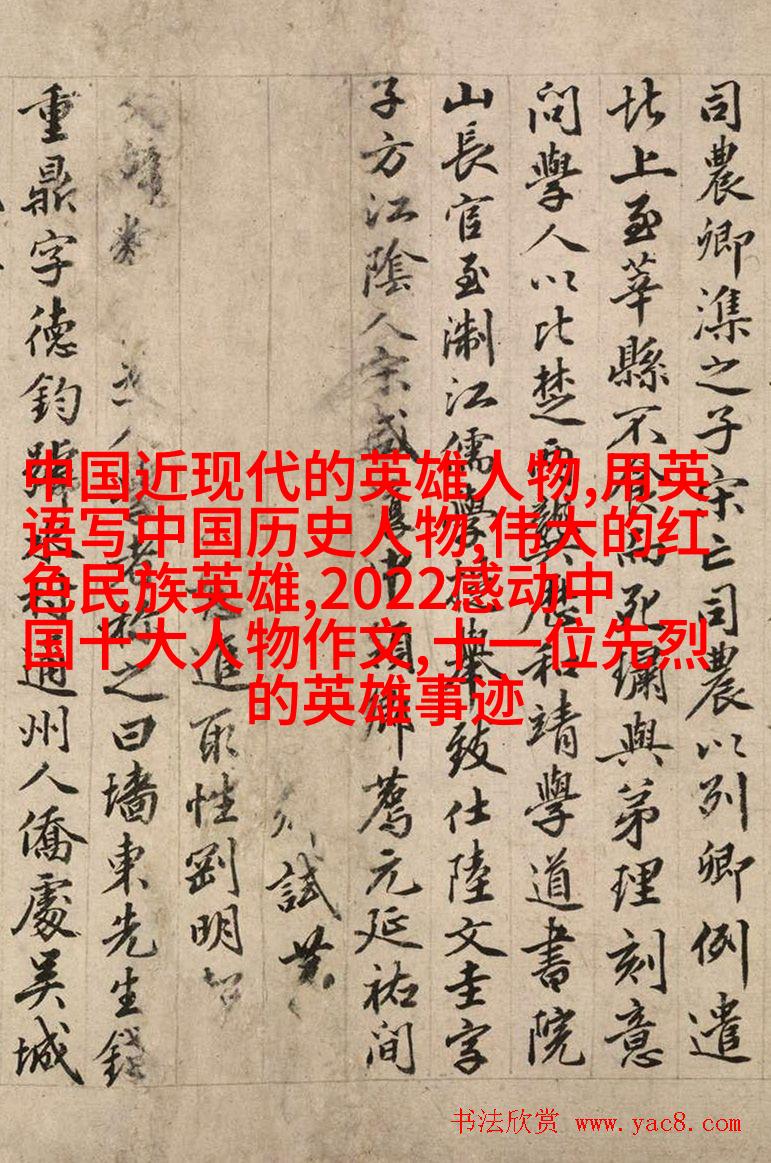 司農卿潗之子宋亡司農以列卿例遣
北上至莘縣不食而死與弟理刻意
問學人以比楚兩龔歷和靖學道書院
山長官至淛江儒學提舉致仕陸文圭字
子方江陰人宋咸淳中鄉薦元延祐間
試
取性劉明
人學者稱之曰墻東先生錢
重鼎字德鈞號水村通州人僑處吳城
中国近现代的英雄人物,用英
语写中国历史人物,伟大的红
色民族英雄,2022感动中
国十大人物作文,十一位先烈
的英雄事迹
书法欣赏 www.yac8.com